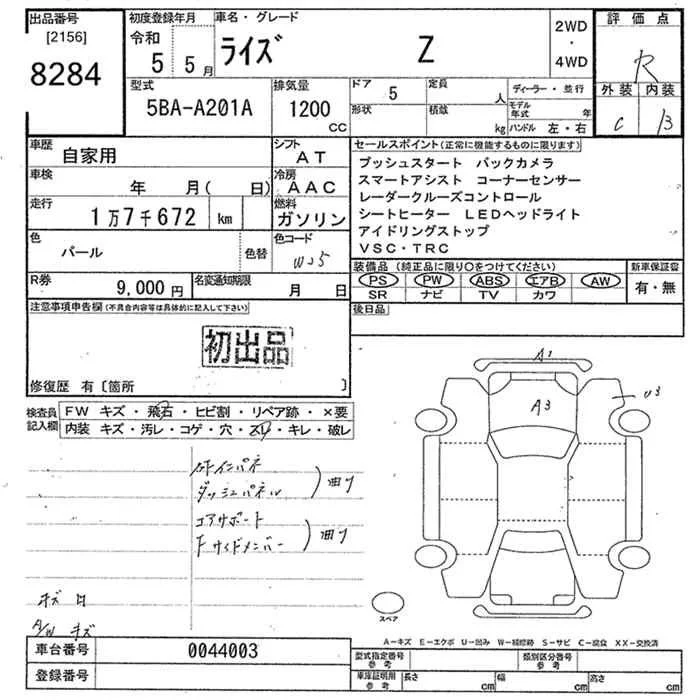 出品番号
[2156]
8284
初度登録年月
令和
5 5月
車名・グレード
ライズ Z
2WD
・
4WD
評価点
R
外装 内装
C B
型式
5BA-A201A
排気量
1200
CC
ドア 5
形状
定員 人
積載 kg
ディーラー・並行
モデル年式 年
ハンドル 左・右
車歴
自家用
シフト
AT
車検
年 月( 日)
冷房
AAC
走行
1万7千672 km
燃料
ガソリン
色
パール
色替
色コード
W25
R券
9,000円
名変通知期限
月 日
セールスポイント(正常に機能するものに限ります)
プッシュスタート バックカメラ
スマートアシスト コーナーセンサー
レーダークルーズコントロール
シートヒーター LEDヘッドライト
アイドリングストップ
VSC・TRC
装備品(純正品に限り○をつけてください)
PS PW ABS エアB AW
SR ナビ TV カワ
新車保証書
有・無
後日品
注意事項申告欄(不具合内容等は具体的に記入して下さい)
初出品
修復歴 有〔箇所 〕
検査員
記入欄
FW キズ・飛石・ヒビ割・リペア跡・×要
内装 キズ・汚レ・コゲ・穴・スレ・キレ・破レ
インパネ
ダッシュパネル
曲り
コアサポート
Fサイドメンバー
曲り
キズ
A/W キズ
A1
A3
U3
スペア
A-キズ E-エクボ U-凹み W-補修跡 S-サビ C-腐食 XX-交換済
車台番号
0044003
登録番号
型式指定番号
参考
類別区分番号
参考
車庫証明用
参考
長さ cm
幅 cm
高さ cm